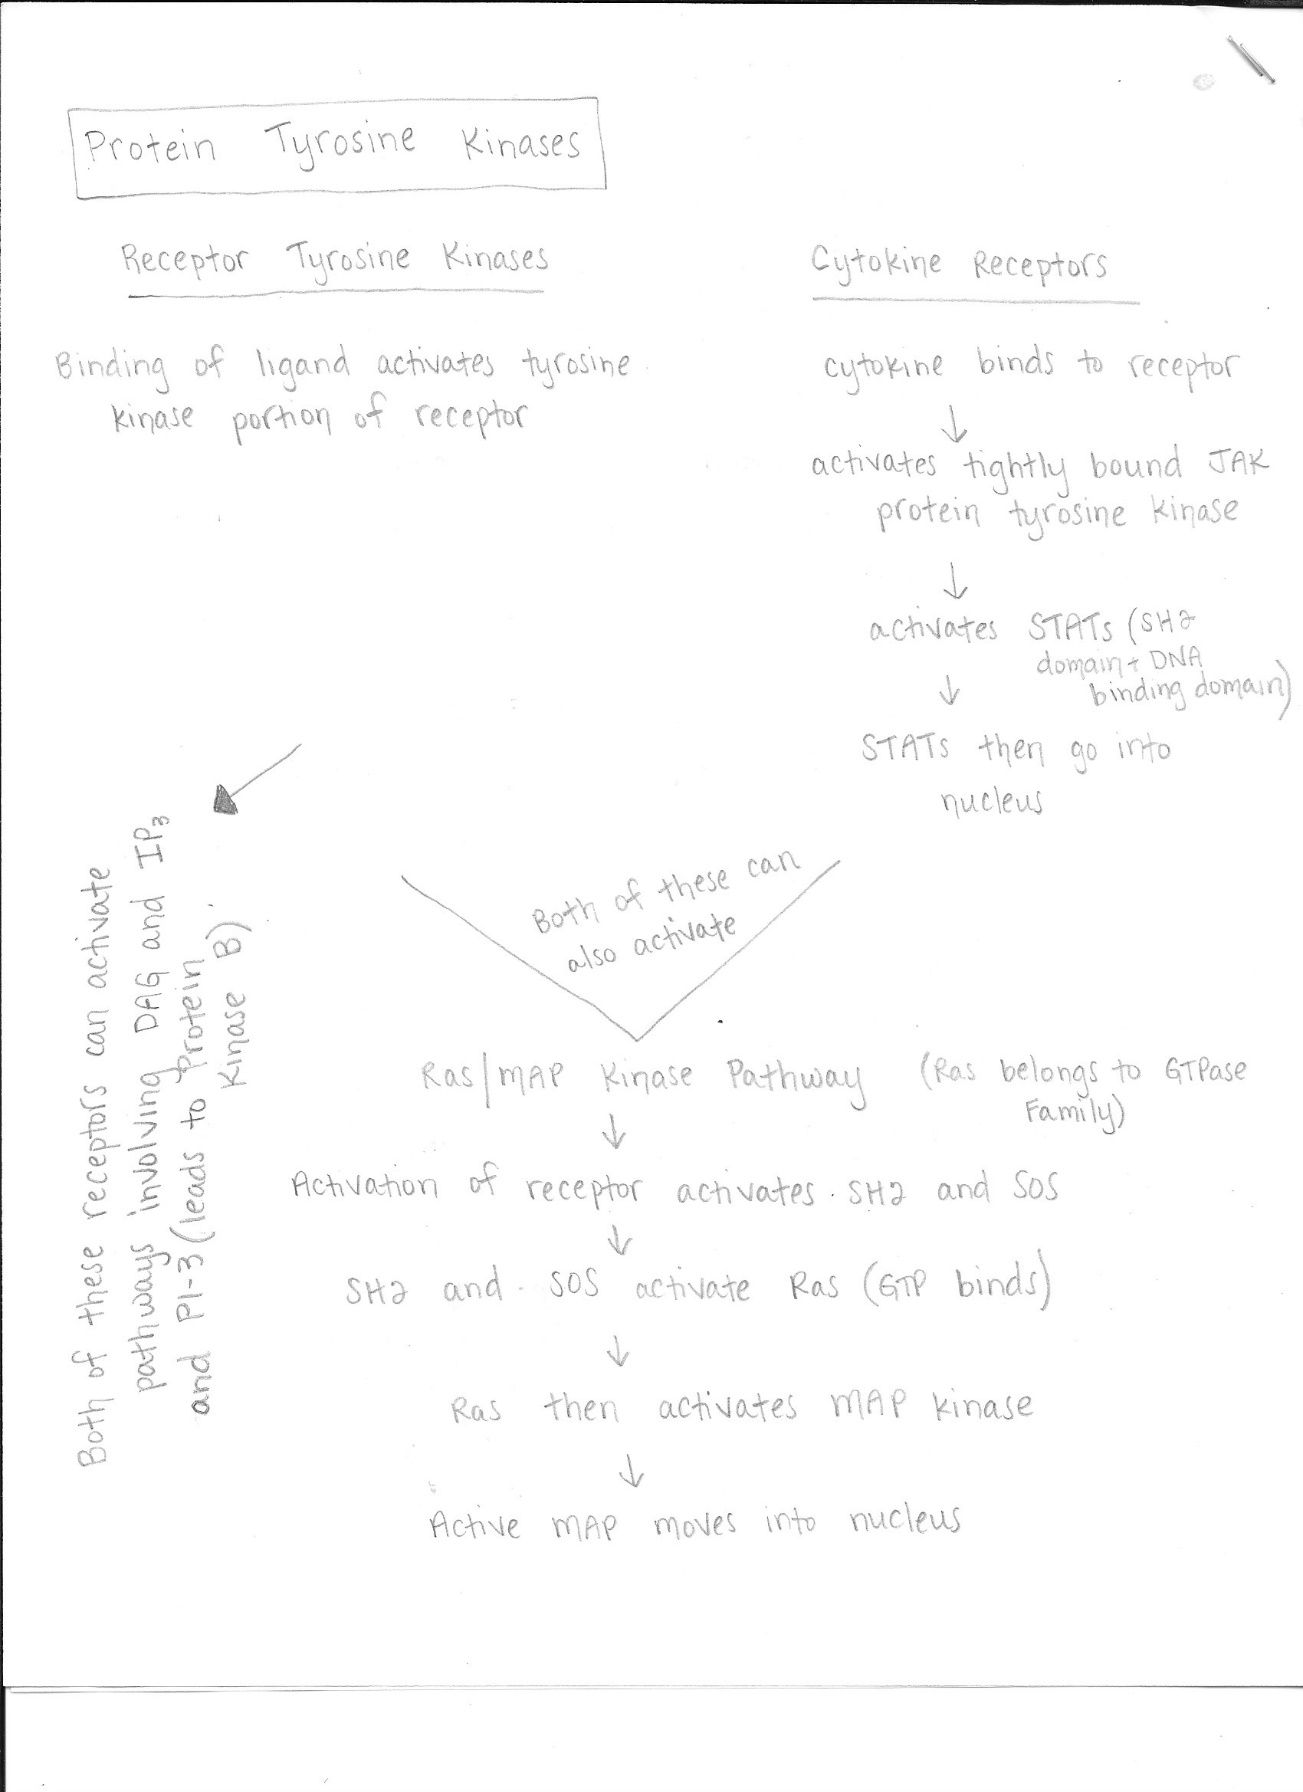 Protein Tyrosine Kinases
Receptor Tyrosine Kinases
Binding of ligand activates tyrosine
kinase portion of receptor
Cytokine Receptors
cytokine binds to receptor
↓
activates tightly bound JAK
protein tyrosine kinase
↓
activates STATs (SH2
domain + DNA
binding domain)
↓
STATs then go into
nucleus
Both of these receptors can activate
pathways involving DAG and IP₃
and PI-3 (leads to Protein
Kinase B)
Both of these can
also activate
Ras/MAP Kinase Pathway (Ras belongs to GTPase
Family)
↓
Activation of receptor activates SH2 and SOS
↓
SH2 and SOS activate Ras (GTP binds)
↓
Ras then activates MAP kinase
↓
Active MAP moves into nucleus